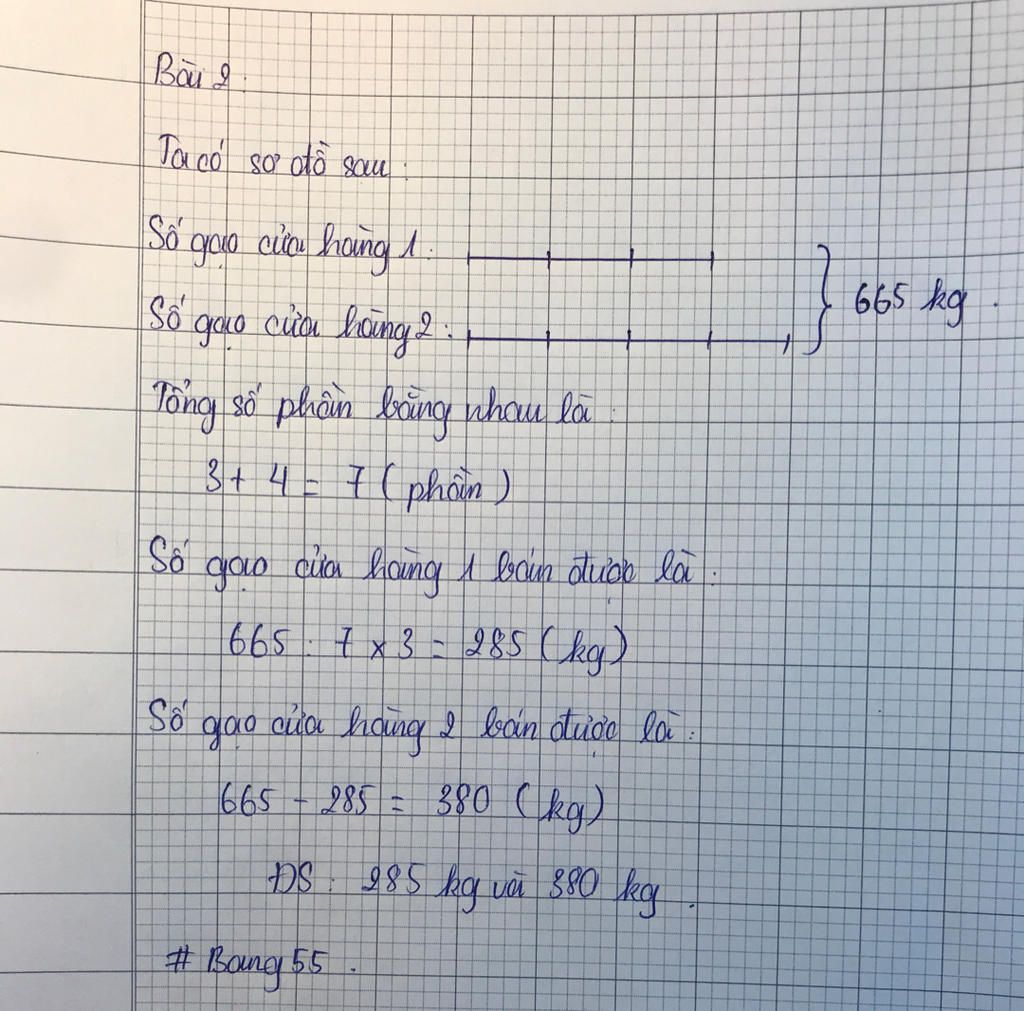 Bài 2:
Ta có sơ đồ sau:
Số gạo cửa hàng 1:
665 kg.
Số gạo cửa hàng 2:
Tổng số phần bằng nhau là:
3 + 4 = 7 (phần)
Số gạo cửa hàng 1 bán được là:
665 : 7 x 3 = 285 (kg)
Số gạo cửa hàng 2 bán được là:
665 - 285 = 380 (kg)
ĐS: 285 kg và 380 kg.
# Bang 55.